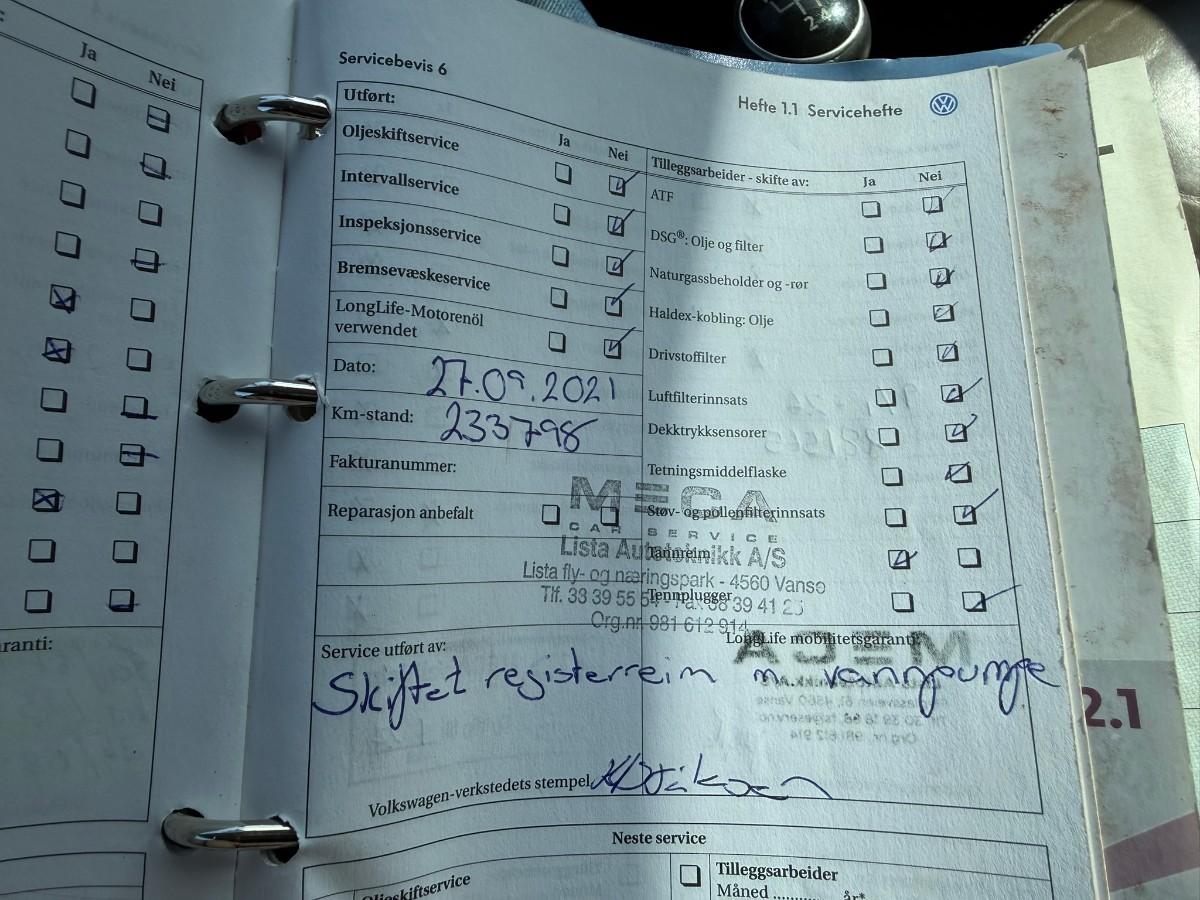 Ja Nei
Servicebevis 6
Hefte 1.1 Servicehefte
Utført:
Ja Nei
Oljeskiftservice
Intervallservice
Inspeksjonsservice
Bremsevæskeservice
LongLife-Motorenöl
verwendet
Dato: 27.09.2021
Km-stand: 233798
Fakturanummer:
Reparasjon anbefalt
Tilleggsarbeider - skifte av: Ja Nei
ATF
DSG®: Olje og filter
Naturgassbeholder og -rør
Haldex-kobling: Olje
Drivstoffilter
Luftfilterinnsats
Dekktrykksensorer
Tetningsmiddelflaske
Støv- og pollenfilterinnsats
Tannreim
Tennplugger
MECA
CAR SERVICE
Lista Autoteknikk A/S
Lista fly- og næringspark - 4560 Vanse
Tlf. 33 39 55 54 - Fax 38 39 41 23
Org.nr. 981 612 914
ranti:
Service utført av:
LongLife mobilitetsgaranti:
Skiftet registerreim m. vannpumpe
Volkswagen-verkstedets stempel
2.1
Neste service
Oljeskiftservice
Tilleggsarbeider
Måned .......... år*